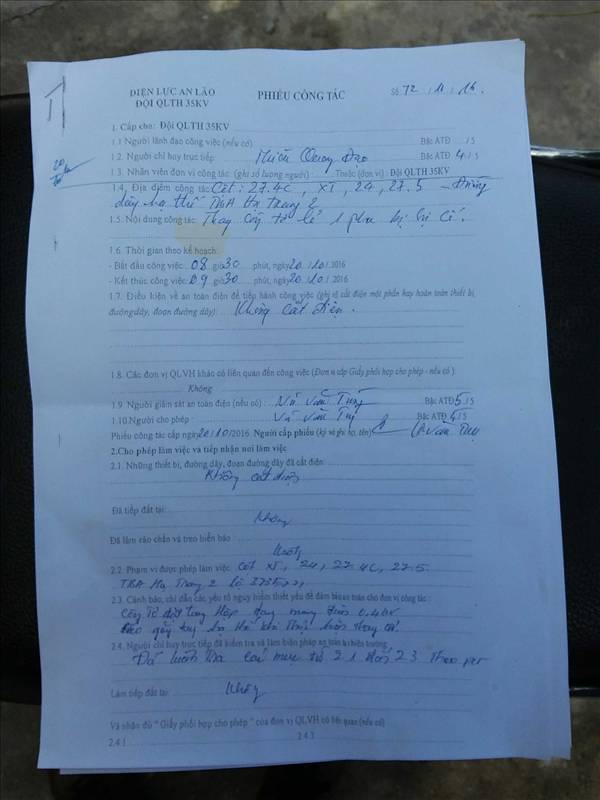 ĐIỆN LỰC AN LÃO
ĐỘI QLTH 35KV
PHIẾU CÔNG TÁC
Số 72/11/16.
1. Cấp cho: Đội QLTH 35KV
1.1 Người lãnh đạo công việc (nếu có) Bậc ATĐ /5
1.2. Người chỉ huy trực tiếp: Quang Đạo Bậc ATĐ 4/5
1.3. Nhân viên đơn vị công tác (ghi số lượng người) Thuộc (đơn vị) Đội QLTH 35KV
1.4. Địa điểm công tác: Cột: 27.4C, XT, 24, 27.5 – Đường
dây hạ thế TBA Hạ Trang 2
1.5. Nội dung công tác: Thay công tơ lẻ 1 pha bị sự cố.
1.6. Thời gian theo kế hoạch:
- Bắt đầu công việc: 08 giờ 30 phút, ngày 20/10/2016
- Kết thúc công việc: 09 giờ 30 phút, ngày 20/10/2016
1.7. Điều kiện về an toàn điện để tiến hành công việc (ghi rõ cắt điện một phần hay hoàn toàn thiết bị,
đường dây, đoạn đường dây): Không cắt điện.
1.8. Các đơn vị QLVH khác có liên quan đến công việc (Đơn vị cấp Giấy phối hợp cho phép - nếu có):
Không
1.9 Người giám sát an toàn điện (nếu có): Văn Bậc ATĐ 5/5
1.10. Người cho phép: Vũ Văn Bậc ATĐ 4/5
Phiếu công tác cấp ngày 20/10/2016 Người cấp phiếu (ký và ghi họ, tên) Văn
2. Cho phép làm việc và tiếp nhận nơi làm việc
2.1. Những thiết bị, đường dây, đoạn đường dây đã cắt điện:
Không cắt điện
Đã tiếp đất tại:
Không
Đã làm rào chắn và treo biển báo:
Không
2.2. Phạm vi được phép làm việc: Cột XT, 24, 27.4C, 27.5
TBA Hạ Trang 2 lộ
2.3. Cảnh báo, chỉ dẫn các yếu tố nguy hiểm thiết yếu để đảm bảo an toàn cho đơn vị công tác:
Công tơ đặt trong Hộp đang mang điện 0.4kV
2.4. Người chỉ huy trực tiếp đã kiểm tra và làm biện pháp an toàn tại hiện trường:
Đã mục từ 2.1 đến 2.3 theo
Làm tiếp đất tại: Không
Và nhận đủ " Giấy phối hợp cho phép " của đơn vị QLVH có liên quan (nếu có)
2.4.1 2.4.3